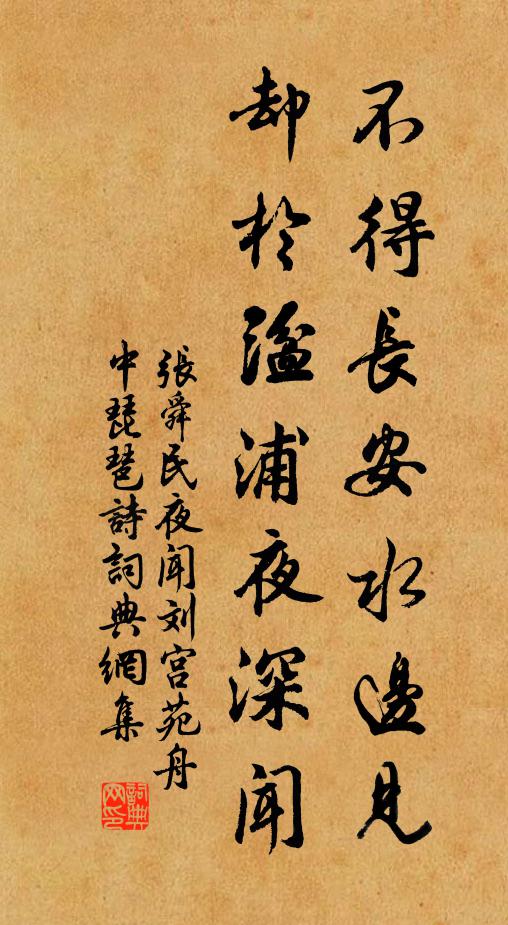 不得長安水邊見
却於湓浦夜深聞
張舜民夜闻刘宫苑舟
中琵琶詩詞典網集
詞典
网印